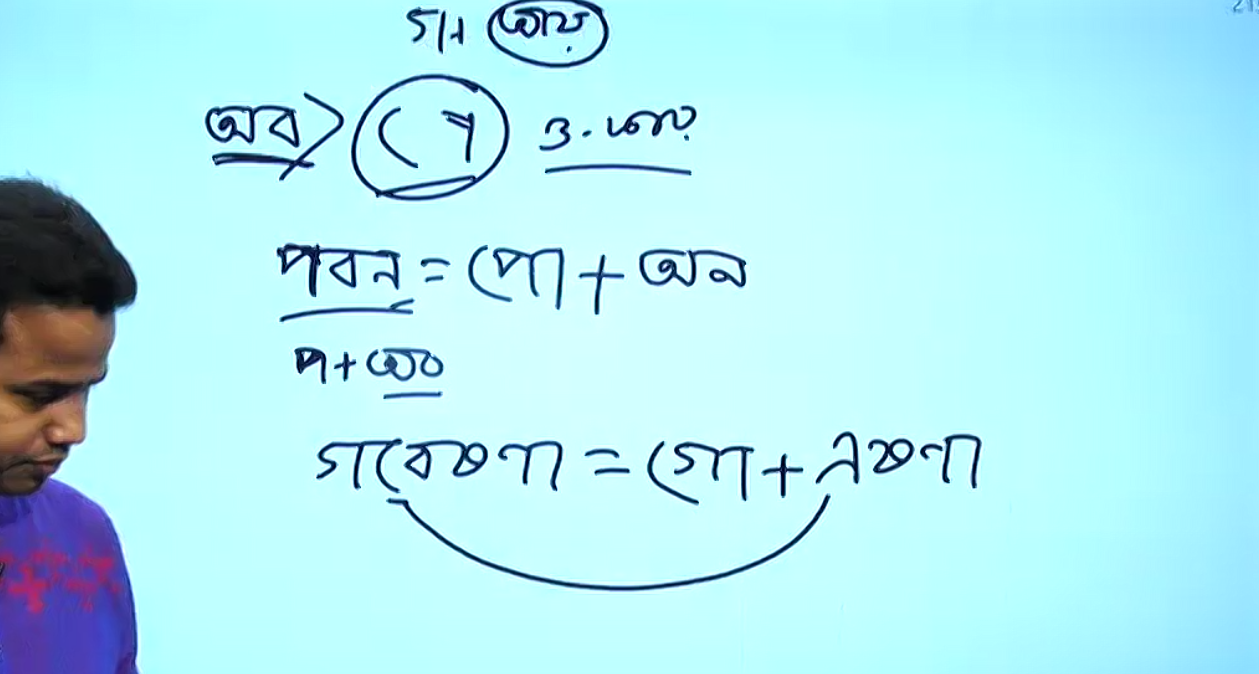 গ+ আয়
অব> (ো ও-কার
পবন = পো + অন
প+অব
গবেষণা = গো + এষণা